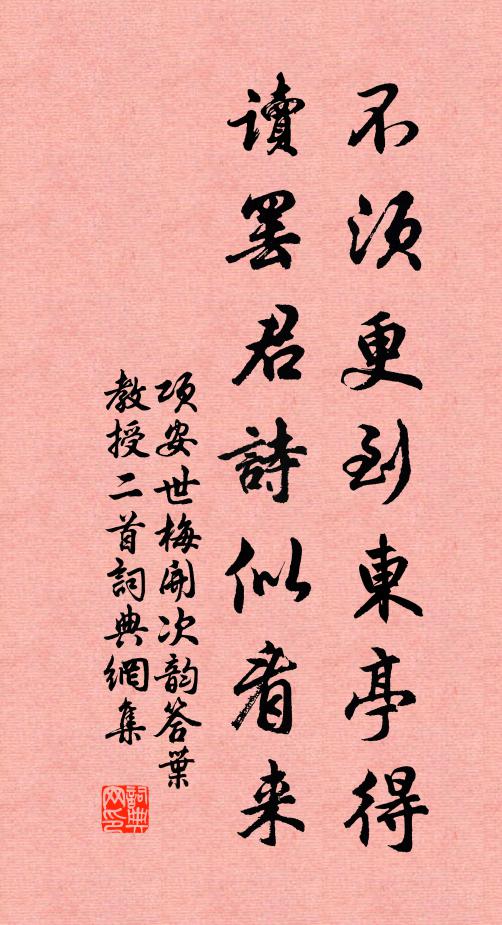 不須更到東亭得
讀罷君詩似看来
項安世梅開次韵答葉
教授二首詞典網集
詞典网印